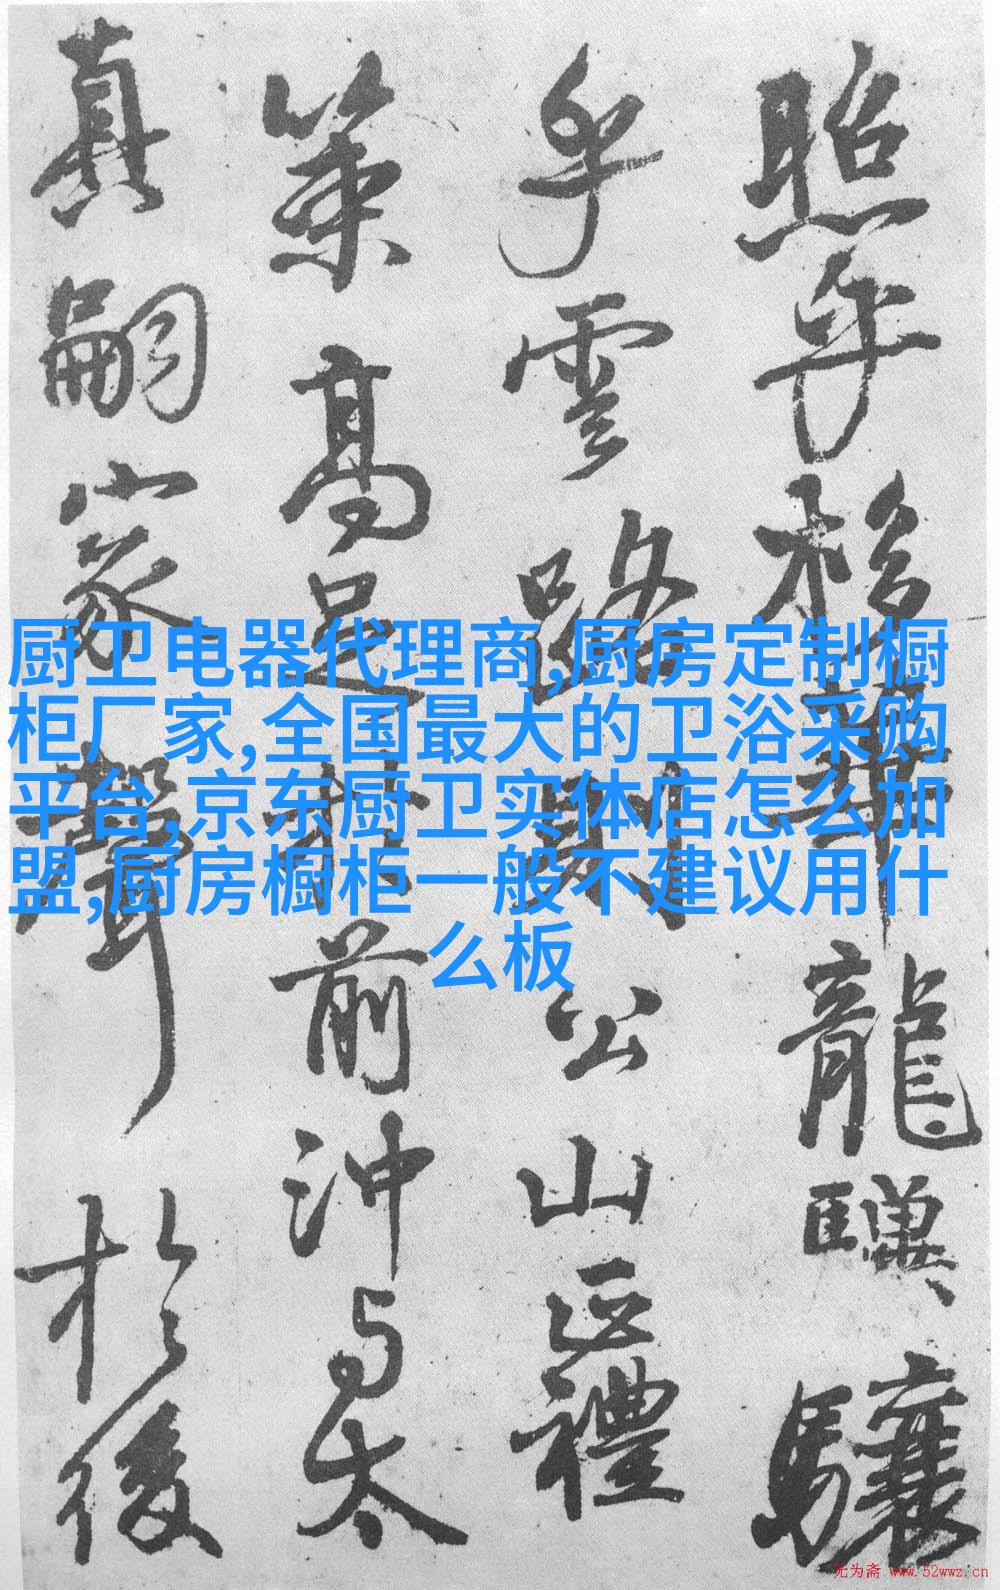 厨卫电器代理商,厨房定制橱
柜厂家,全国最大的卫浴采购
平台,京东厨卫实体店怎么加
盟,厨房橱柜一般不建议用什
么板
照乎栘華龍驥驤
乎雲路則公山正禮
策高足於前沖与太
真嗣家聲於後
无为斋 www.52wwz.cn